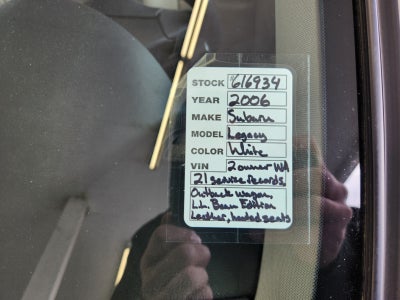 STOCK 616934
YEAR 2006
MAKE Subaru
MODEL Legacy
COLOR White
VIN 2 owner WA
21 service records
Outback wagon,
L.L. Bean Edition
Leather, heated seats